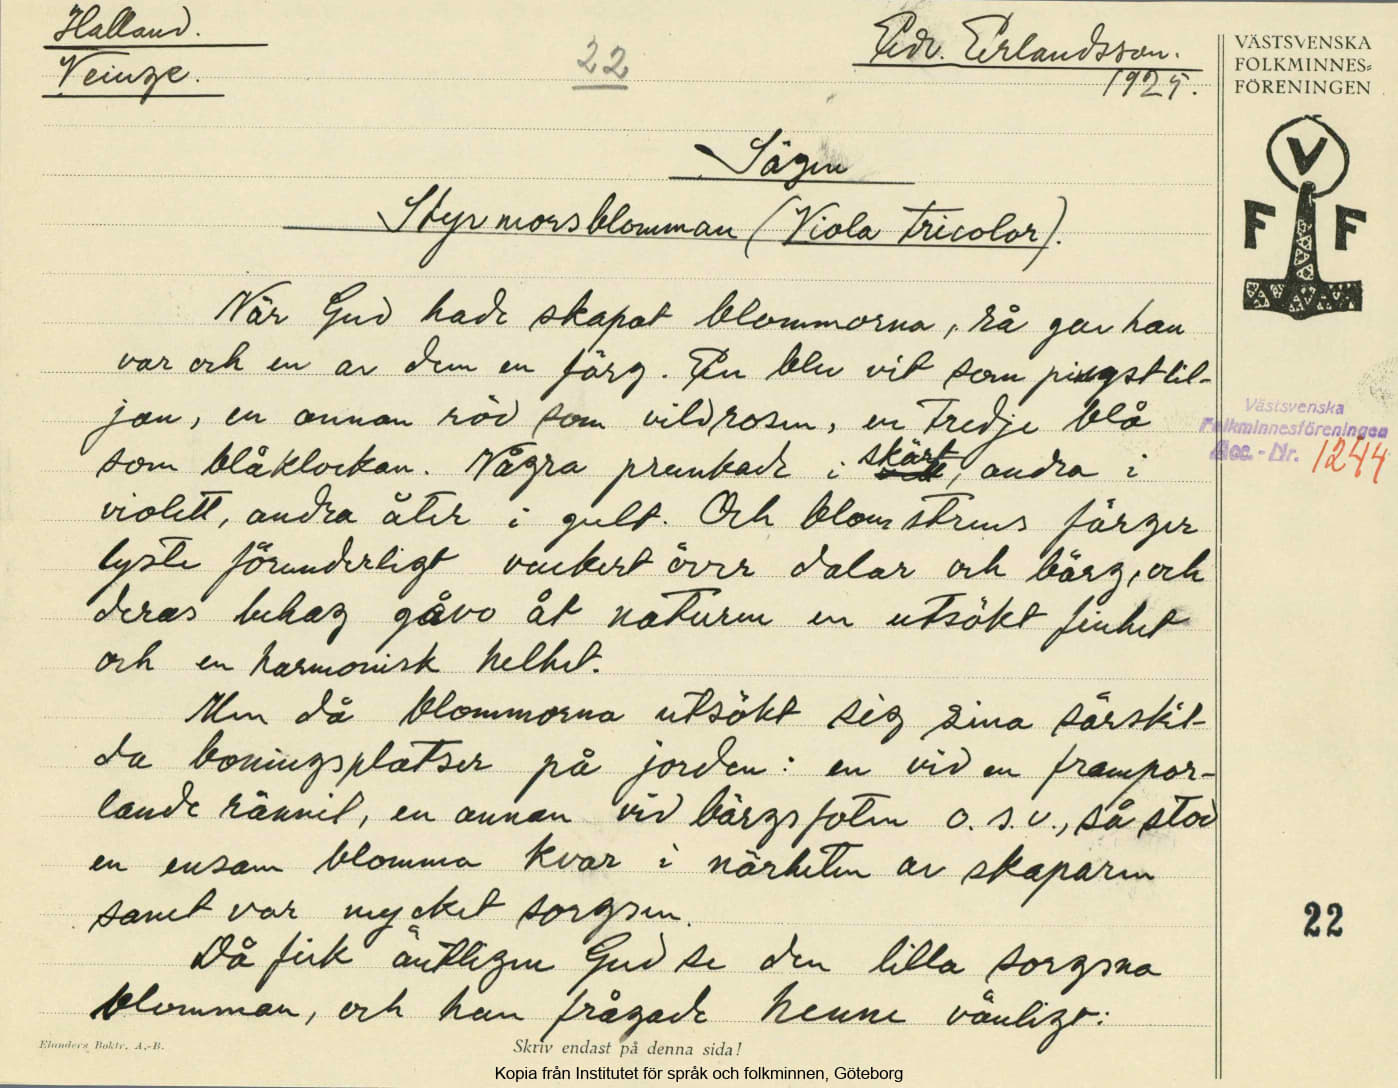 Halland.
Veinge.
22
Edv. Erlandsson.
1925.
VÄSTSVENSKA
FOLKMINNES-
FÖRENINGEN
V
F F
Sägen
Styvmorsblomman (Viola tricolor).
När Gud hade skapat blommorna, så gav han
var och en av dem en färg. En blev vit som pingstlil-
jan, en annan röd som vildrosen, en tredje blå
som blåklockan. Några prunkade i skärt, andra i
violett, andra åter i gult. Och blomstrens färger
lyste förunderligt vackert över dalar och bärg, och
deras behag gåvo åt naturen en utsökt finhet
och en harmonisk helhet.
Men då blommorna utsökt sig sina särskil-
da boningsplatser på jorden: en vid en frampor-
lande rännil, en annan vid bärgsfoten o.s.v., så stod
en ensam blomma kvar i närheten av skaparen
samt var mycket sorgsen.
Då fick äntligen Gud se den lilla sorgsna
blomman, och han frågade henne vänligt:
Västsvenska
Folkminnesföreningen
Acc.-Nr. 1244
22
Elanders Boktr. A.-B.
Skriv endast på denna sida!
Kopia från Institutet för språk och folkminnen, Göteborg